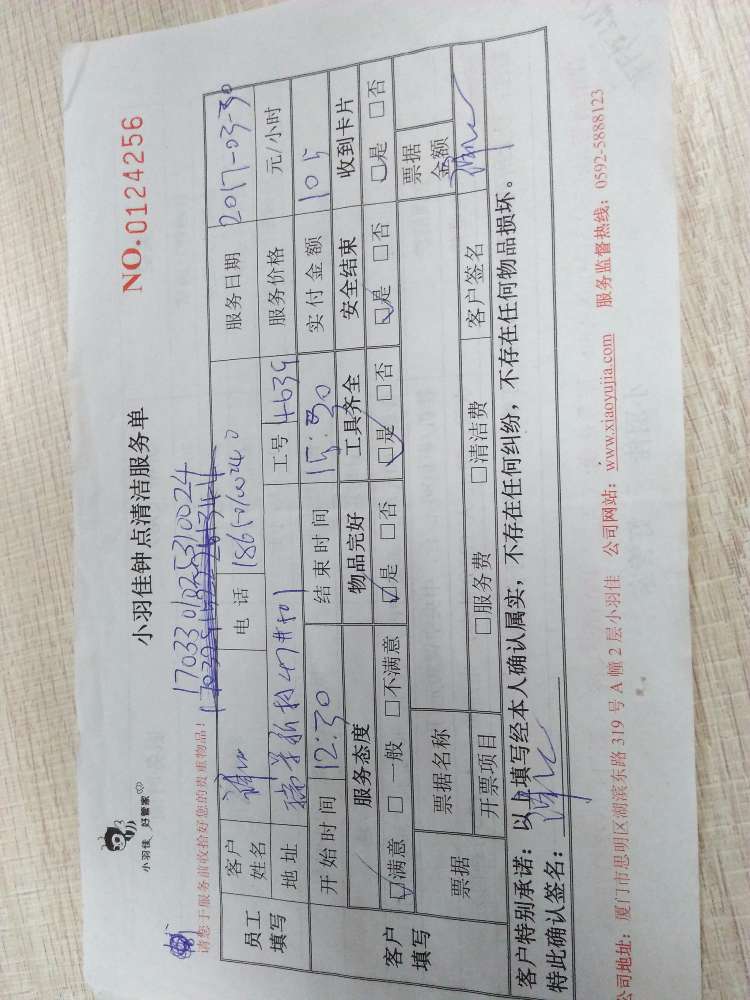 小羽佳 好管家
小羽佳钟点清洁服务单
NO.0124256
请您于服务前收拾好您的贵重物品!
1703301825310024
员工填写 客户姓名 电话 服务日期 2017-03-30
地址 47#501 工号 4639 服务价格 元/小时
开始时间 12:30 结束时间 15:30 实付金额 105
客户填写 服务态度 物品完好 工具齐全 安全结束 收到卡片
☑满意 □一般 □不满意 ☑是 □否 ☑是 □否 ☑是 □否 □是 □否
票据 票据名称 票据金额
开票项目 □服务费 □清洁费 客户签名
客户特别承诺:以上填写经本人确认属实,不存在任何纠纷,不存在任何物品损坏。
特此确认签名:
公司地址:厦门市思明区湖滨东路319号A幢2层小羽佳 公司网站:www.xiaoyujia.com 服务监督热线:0592-5888123